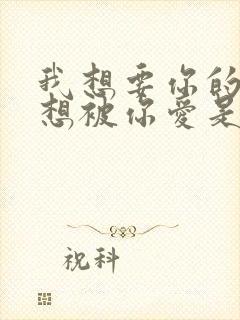 我想要你的
想被你爱是
祝科